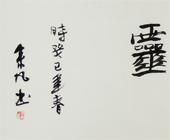 靈
時癸巳年春
金凡書